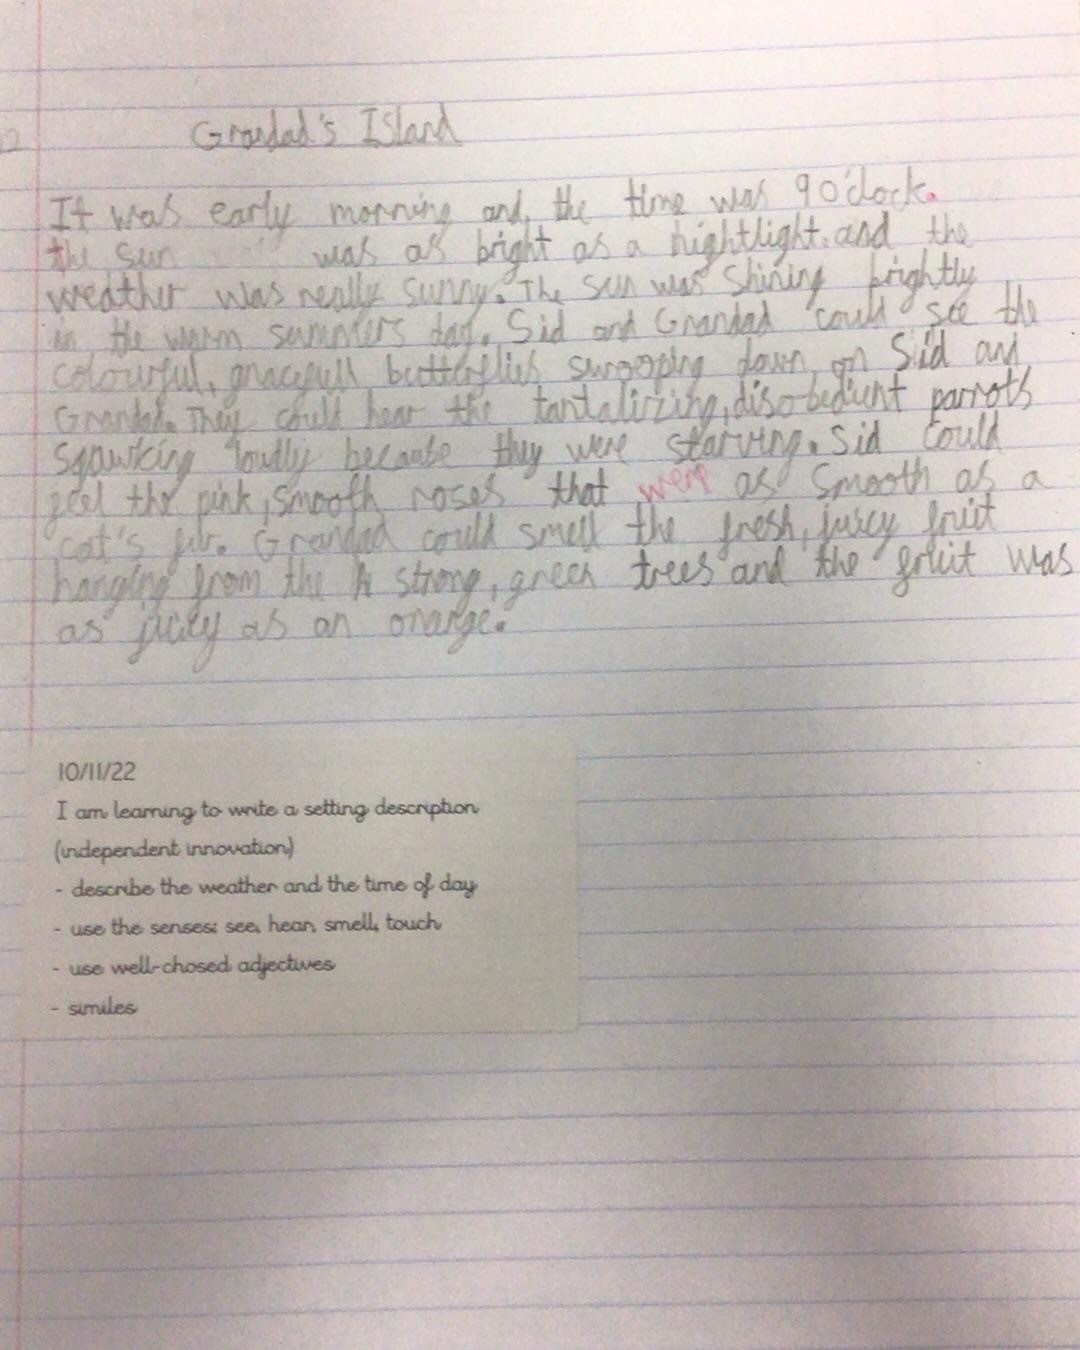 Grandad's Island
It was early morning and, the time was 9 O'clock.
the sun was as bright as a nightlight. and the
weather was really sunny. The sun was shining brightly
in the warm summers day. Sid and Grandad could see the
colourful, gracefull butterflies swooping down on Siid and
Grandad. They could hear the tantalizing, disobedient parrots
sqawking loudly because they were starving. Sid could
feel the pink, smooth roses that were as smooth as a
cat's fur. Grandad could smell the fresh, juicy fruit
hanging from the strong, green trees and the fruit was
as juicy as an orange.
10/11/22
I am learning to write a setting description
(independent innovation)
- describe the weather and the time of day
- use the senses: see, hear, smell, touch
- use well-chosed adjectives
- similes